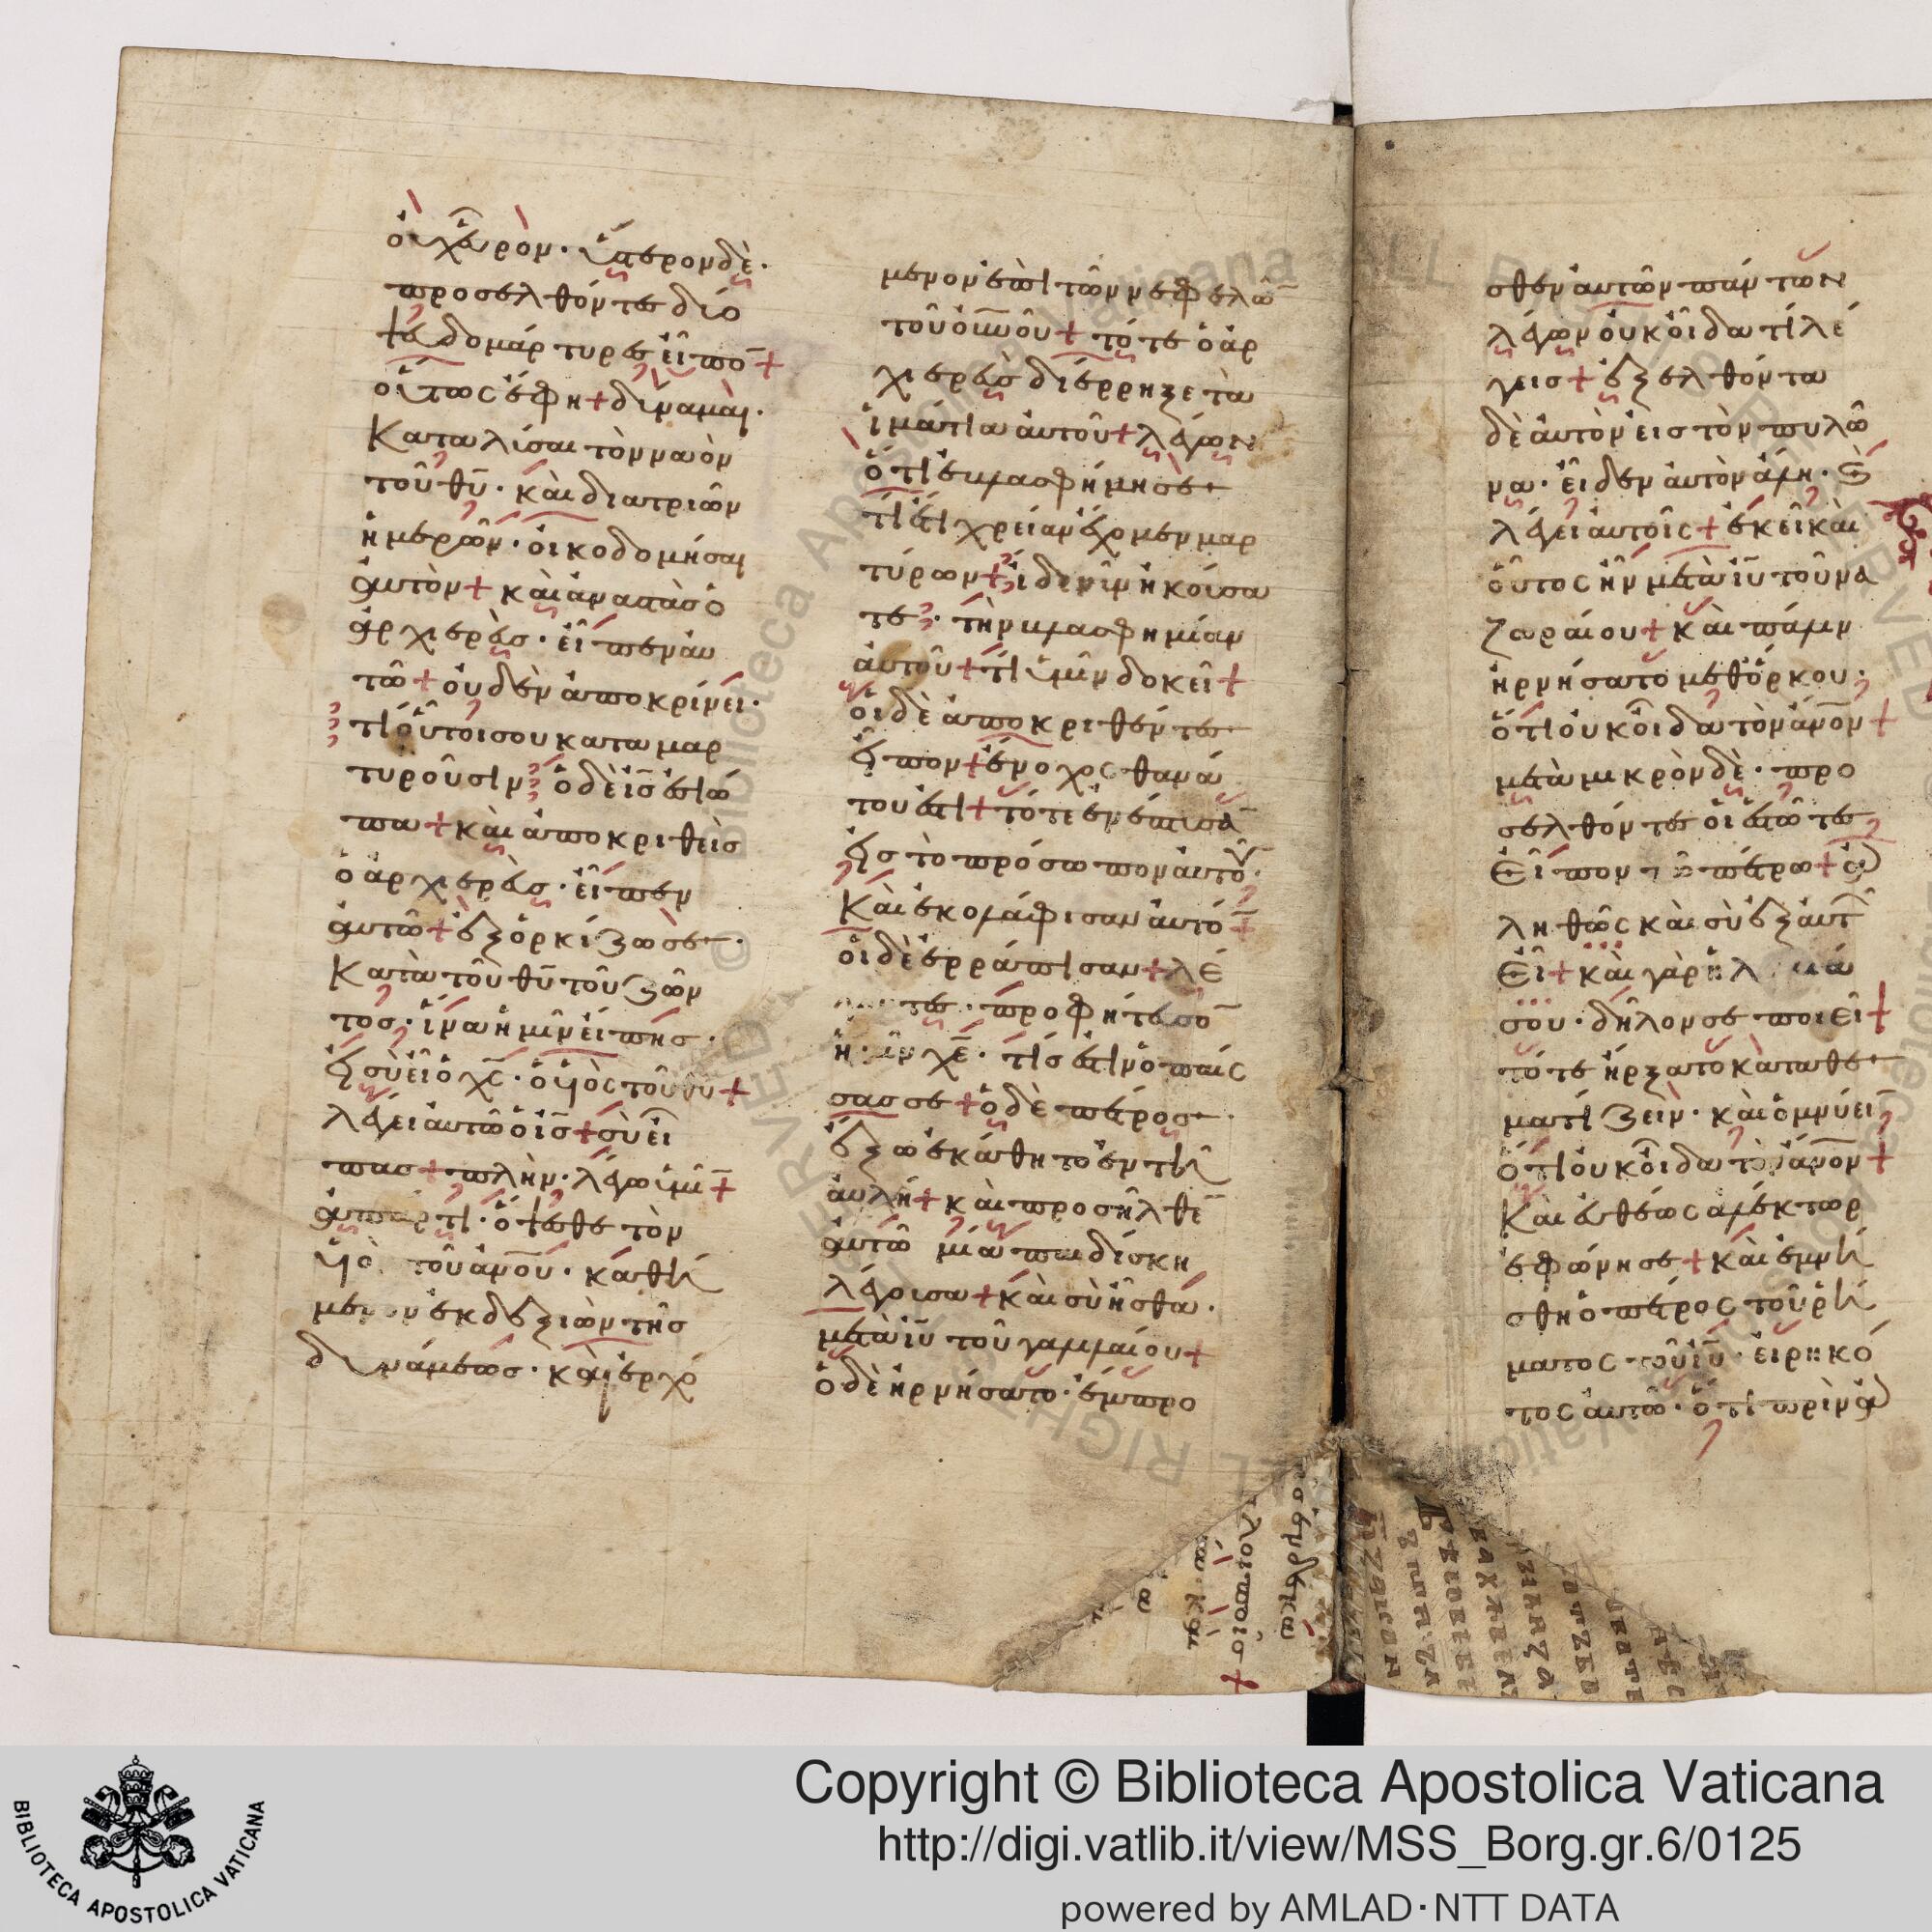 οὐχ εὗρον· ὕστερον δὲ·
προσελθόντες δύο
ψευδομάρτυρες εἶπο̅ +
οὗτος ἔφη + δύναμαι·
Καταλῦσαι τὸν ναὸν
τοῦ θυ̅· καὶ διὰ τριῶν
ἡμερῶν· οἰκοδομῆσαι
αὐτὸν + καὶ ἀναστὰς ὁ
ἀρχιερεὺς· εἶπεν αυ
τῶ + οὐδὲν ἀποκρίνει·
τί οὗτοι σου καταμαρ
τυροῦσιν ὁ δὲ ις̅ ἐσιώ
πα + καὶ ἀποκριθεὶς
ὁ ἀρχιερεὺς· εἶπεν
αὐτῶ + ἐξορκίζω σε·
Κατὰ τοῦ θυ̅ τοῦ ζῶν
τος· ἵνα ἡμῖν εἴπης·
εἰ σὺ εἶ ὁ χς̅· ὁ υἱὸς τοῦ θυ̅ +
λέγει αὐτῶ ὁ ις̅ + σὺ εἶ
πας + πλὴν· λέγω ὑμῖ̅ +
ἀπάρτι· ὄψεσθε τὸν
υἱὸ τοῦ ἀνο̅υ· καθή
μενον ἐκ δεξιῶν τῆς
δυνάμεως· καὶ ἐρχό
μενον ἐπὶ τῶν νεφελῶ̅
τοῦ οὐνο̅ῦ + τότε ὁ ἀρ
χιερεὺς διέρρηξε τὰ
ἱμάτια αὐτοῦ + λέγων
ὅτι ἐβλασφήμησε·
τί ἔτι χρείαν ἔχομεν μαρ
τύρων + ἴδε νῦν ἠκούσα
τε· τὴν βλασφημίαν
αὐτοῦ + τί ὑμῖν δοκεῖ +
οἱ δὲ ἀποκριθέντες
εἶπον + ἔνοχος θανά
του ἐστὶ + τότε ἐνέπτυσα̅
εἰς τὸ πρόσωπον αὐτοῦ·
Καὶ ἐκολάφισαν αὐτό̅ +
οἱ δὲ ἐρράπισαν + λέ
γοντες· προφήτευσο̅
ἡμῖν χε̅· τίς ἐστιν ὁ παίς
σας σε + ὁ δὲ πέτρος·
ἔξω ἐκάθητο ἐν τῆ
αὐλῆ + καὶ προσῆλθε̅
αὐτῶ μία παιδίσκη
λέγουσα + καὶ σὺ ἦσθα·
μετὰ ιυ̅ τοῦ γαλιλαίου +
ὁ δὲ ἠρνήσατο· ἔμπρο
σθεν αὐτῶν πάντων
λέγων οὐκ οἶδα τί λέ
γεις + ἐξελθόντα
δὲ αὐτὸν εἰς τὸν πυλῶ
να· εἶδεν αὐτὸν ἄλλη· Καὶ
λέγει αὐτοῖς + ἐκεῖ καὶ
οὗτος ἦν μετὰ ιυ̅ τοῦ να
ζωραίου + καὶ πάλιν
ἠρνήσατο μεθόρκου·
ὅτι οὐκ οἶδα τὸν ἀνο̅ν +
μετὰ μικρὸν δὲ· προ
σελθόντες οἱ ἑστῶτες
Εἶπον τῶ πέτρω + ἀ
ληθῶς καὶ σὺ ἐξ αὐτ
Εἶ + καὶ γὰρ ἡ λαλιά
σου· δῆλόν σε ποιεῖ +
τότε ἤρξατο καταθε
ματίζειν· καὶ ὀμνύει̅
ὅτι οὐκ οἶδα τὸν ἀνο̅ν +
Καὶ εὐθέως ἀλέκτωρ
ἐφώνησε + καὶ ἐμνή
σθη ὁ πέτρος τοῦ ρή
ματος τοῦ ιυ̅· εἰρηκό
τος αὐτῶ· ὅτι πρὶν ἀ
Copyright © Biblioteca Apostolica Vaticana
http://digi.vatlib.it/view/MSS_Borg.gr.6/0125
powered by AMLAD·NTT DATA
BIBLIOTECA APOSTOLICA VATICANA